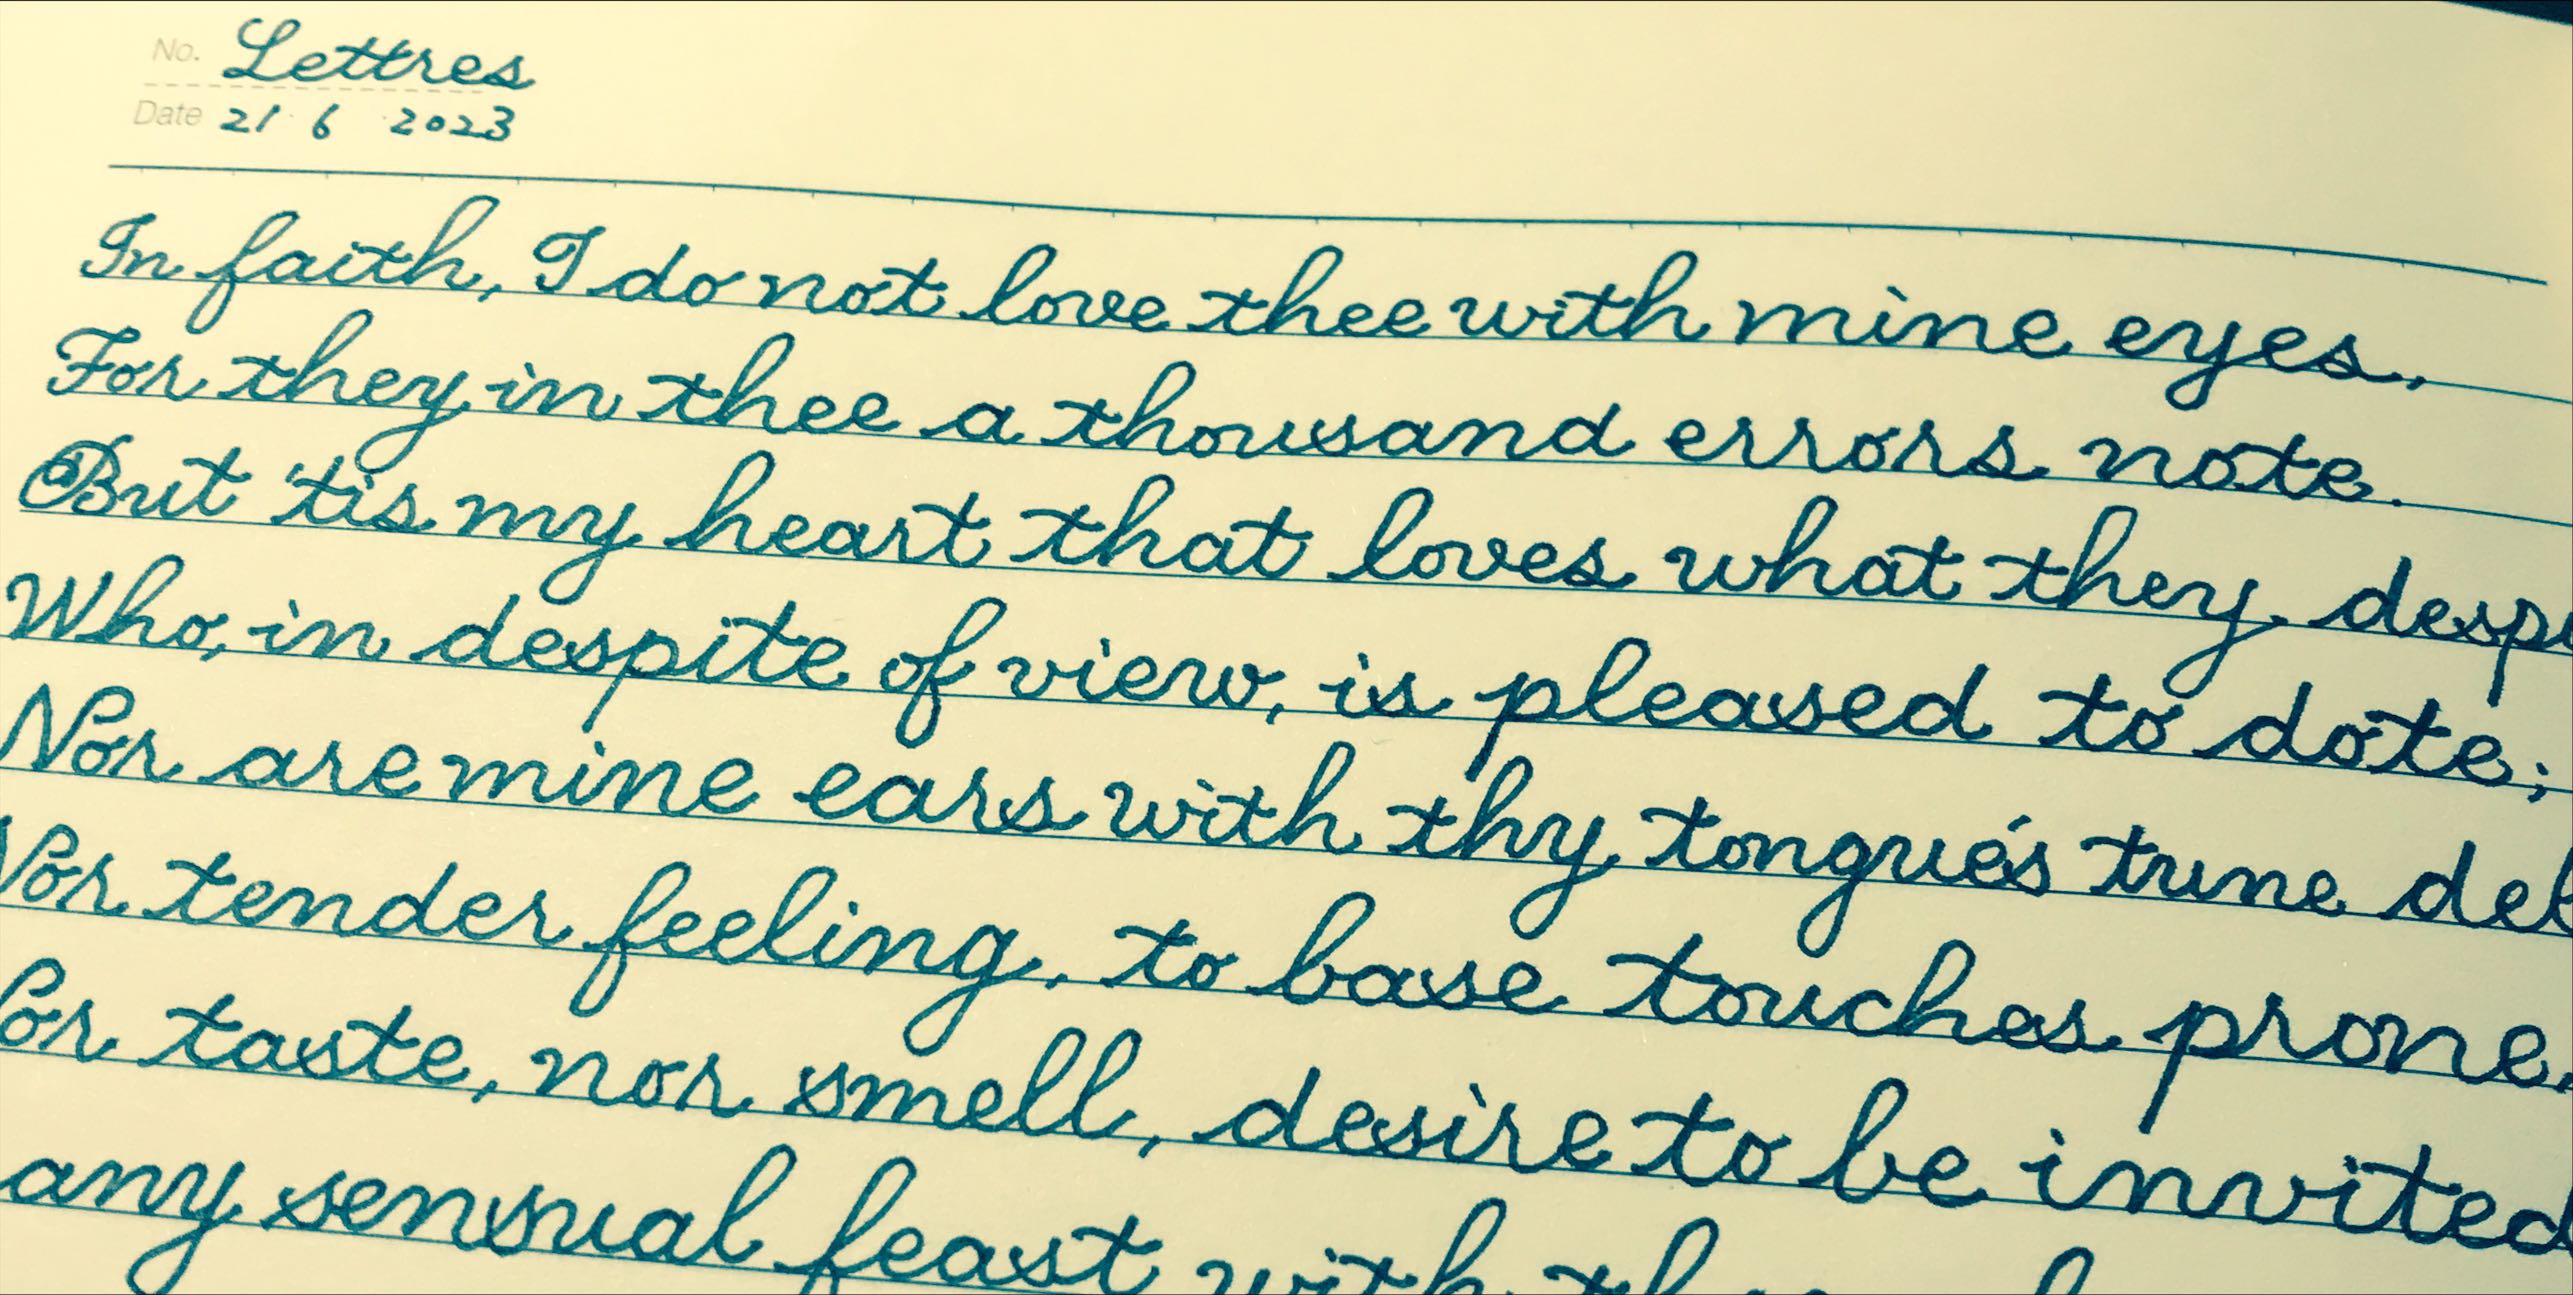 No. Lettres
Date 21 6 2023
In faith, I do not love thee with mine eyes,
For they in thee a thousand errors note.
But 'tis my heart that loves what they despi
Who, in despite of view, is pleased to dote;
Nor are mine ears with thy tongue's tune del
Nor tender feeling, to base touches prone.
Nor taste, nor smell, desire to be invited
any sensual feast with thee